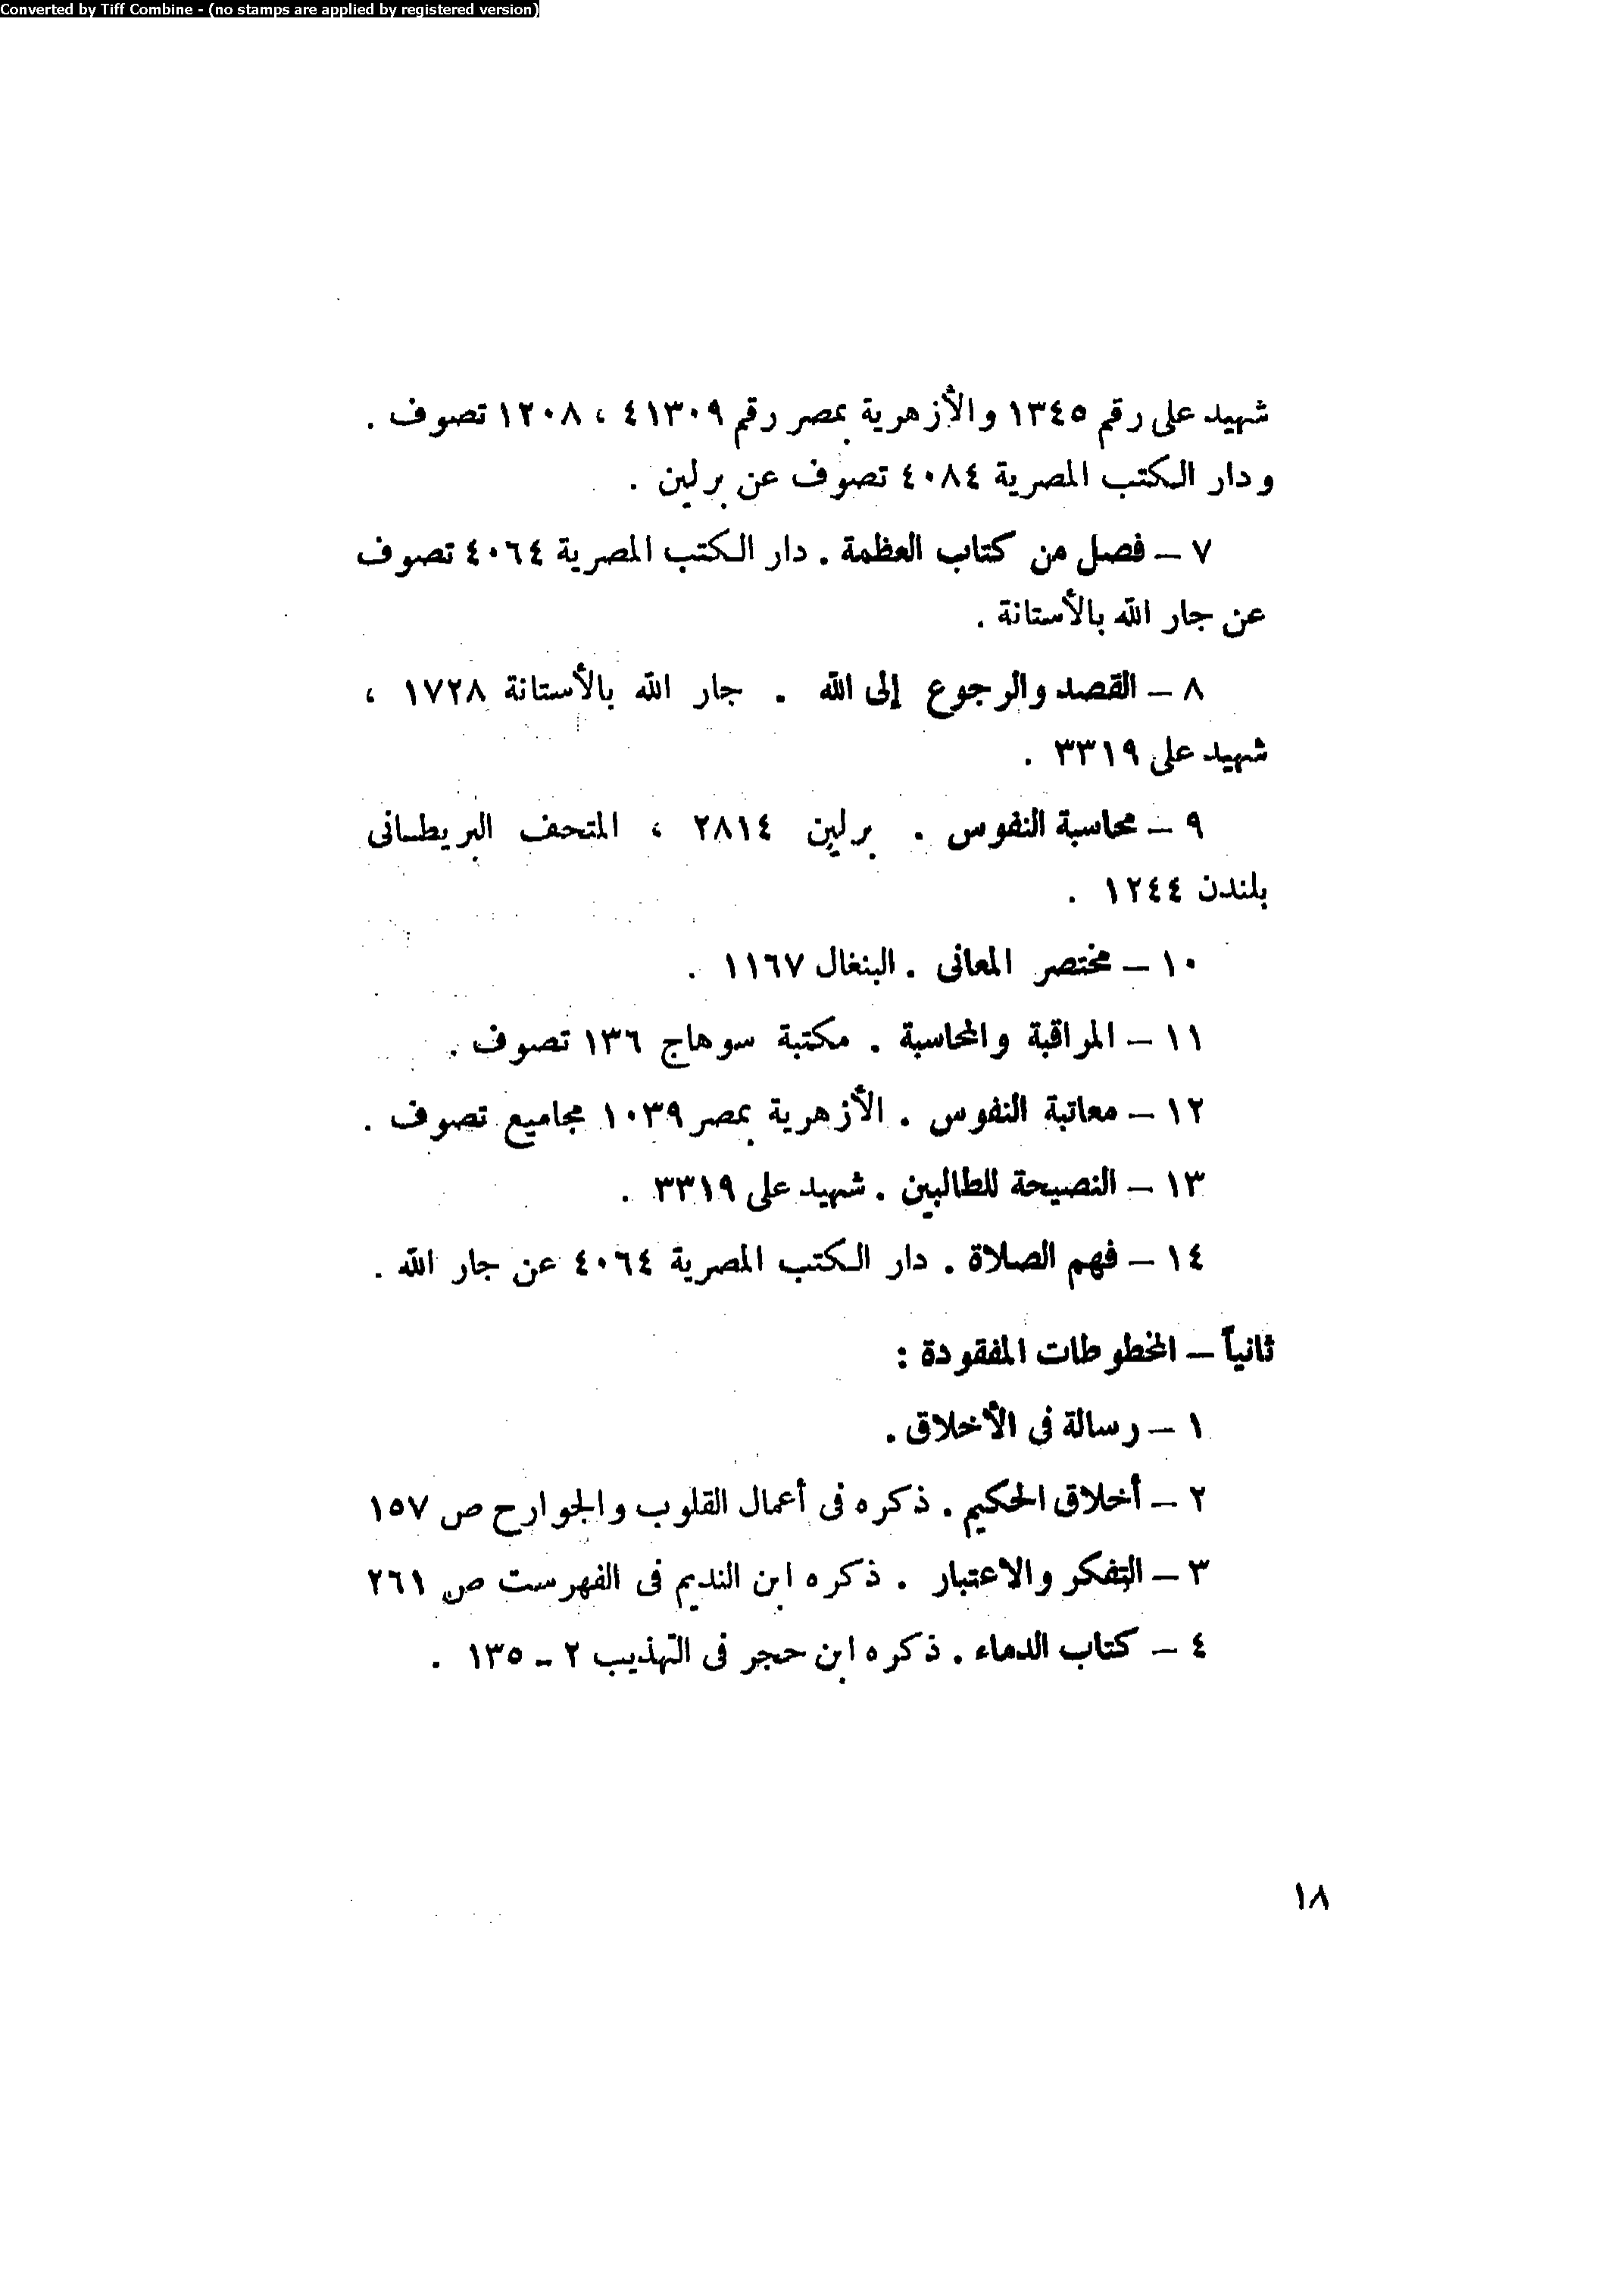 Converted by Tiff Combine - (no stamps are applied by registered version)
شهيد على رقم ١٣٤٥ والأزهرية بمصر رقم ٤١٣٠٩ ، ١٢٠٨ تصوف .
ودار الكتب المصرية ٤٠٨٤ تصوف عن برلين .
٧ – فصل من كتاب العظمة . دار الكتب المصرية ٤٠٦٤ تصوف
عن جار الله بالأستانة .
٨ – القصد والرجوع إلى الله . جار الله بالأستانة ١٧٢٨ ،
شهيد على ٣٣١٩ .
٩ – محاسبة النفوس . برلين ٢٨١٤ ، المتحف البريطانى
بلندن ١٢٤٤ .
١٠ – مختصر المعانى . البنغال ١١٦٧ .
١١ – المراقبة والمحاسبة . مكتبة سوهاج ١٣٦ تصوف .
١٢ – معاتبة النفوس . الأزهرية بمصر ١٠٣٩ مجاميع تصوف .
١٣ – النصيحة للطالبين . شهيد على ٣٣١٩ .
١٤ – فهم الصلاة . دار الكتب المصرية ٤٠٦٤ عن جار الله .
ثانياً – المخطوطات المفقودة :
١ – رسالة فى الأخلاق .
٢ – أخلاق الحكيم . ذكره فى أعمال القلوب والجوارح ص ١٥٧
٣ – التفكر والاعتبار . ذكره ابن النديم فى الفهرست ص ٢٦١
٤ – كتاب الدماء . ذكره ابن حجر فى التهذيب ٢ – ١٣٥ .
١٨